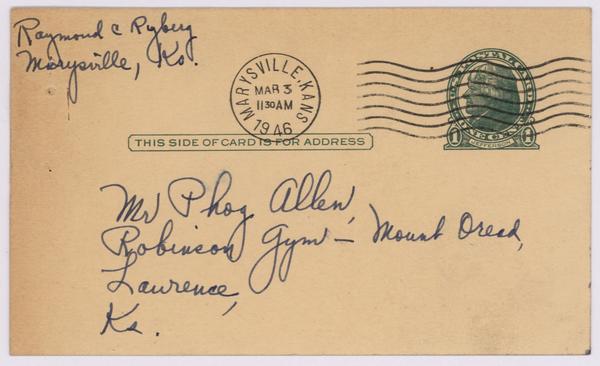 Raymond C Ryberg
Marysville, Ks.
MARYSVILLE, KANS
MAR 3
11 30 AM
1946
THIS SIDE OF CARD IS FOR ADDRESS
1
JEFFERSON
Mr Phog Allen,
Robinson Gym – Mount Oread,
Laurence,
Ks.